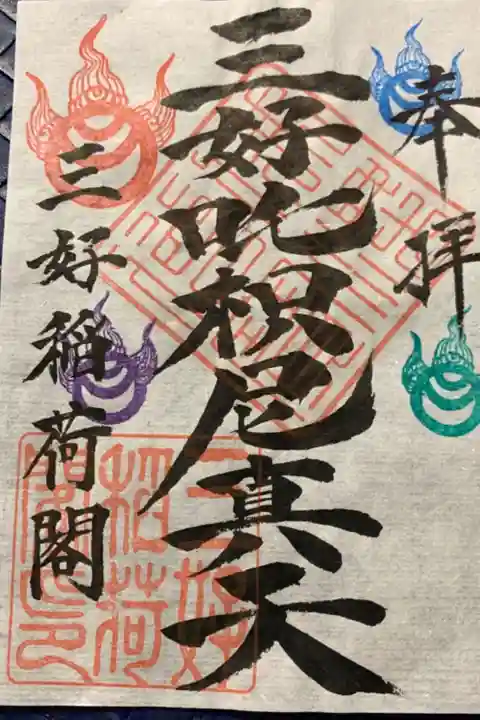 奉拝
三好吒枳尼真天
三好稲荷閣
三好稲荷閣之印